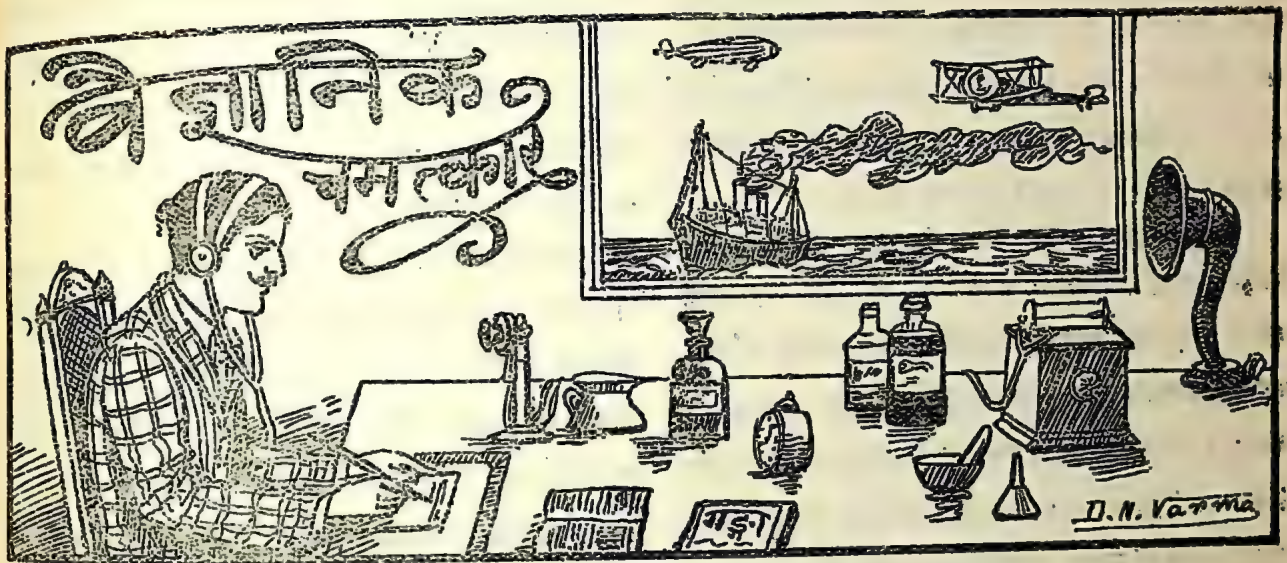 वैज्ञानिक
चमत्कार
गङ्गा
D. N. Varma